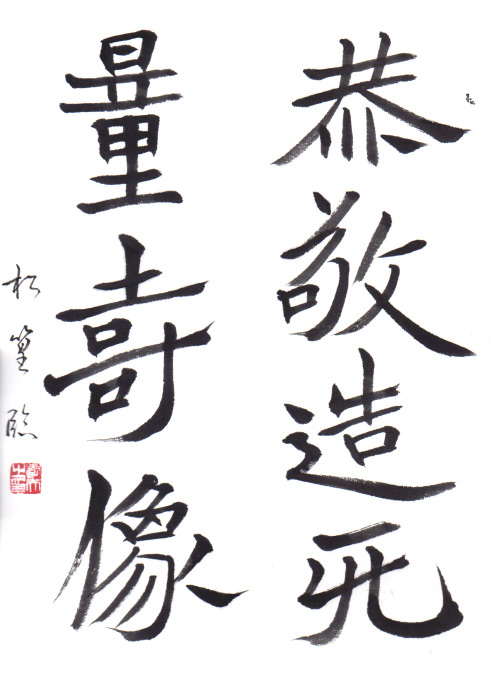 恭敬造无
量壽像
松篁臨